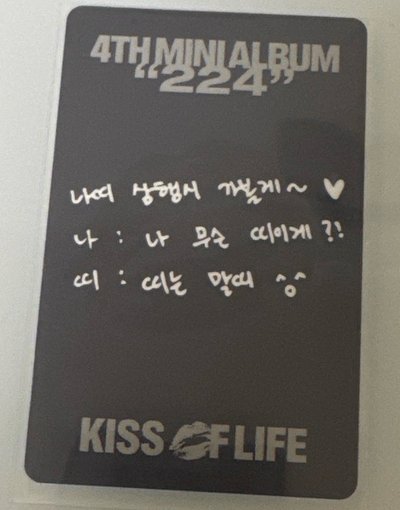 4TH MINI ALBUM
“224”
나띠 상행시 가볼게~ ♥
나 : 나 무슨 띠이게?!
띠 : 띠는 말띠 ^o^
KISS OF LIFE